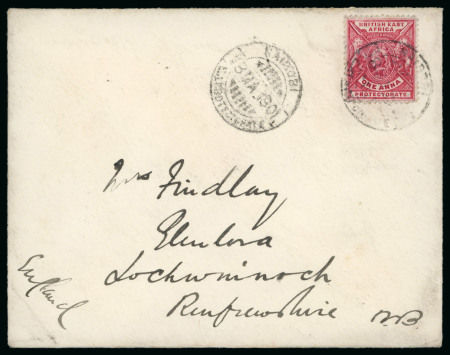 BRITISH EAST
AFRICA
ONE ANNA
PROTECTORATE
NAIROBI
Mrs Findlay
Glenlora
Lochwinnoch
Renfrewshire
N.B.
England